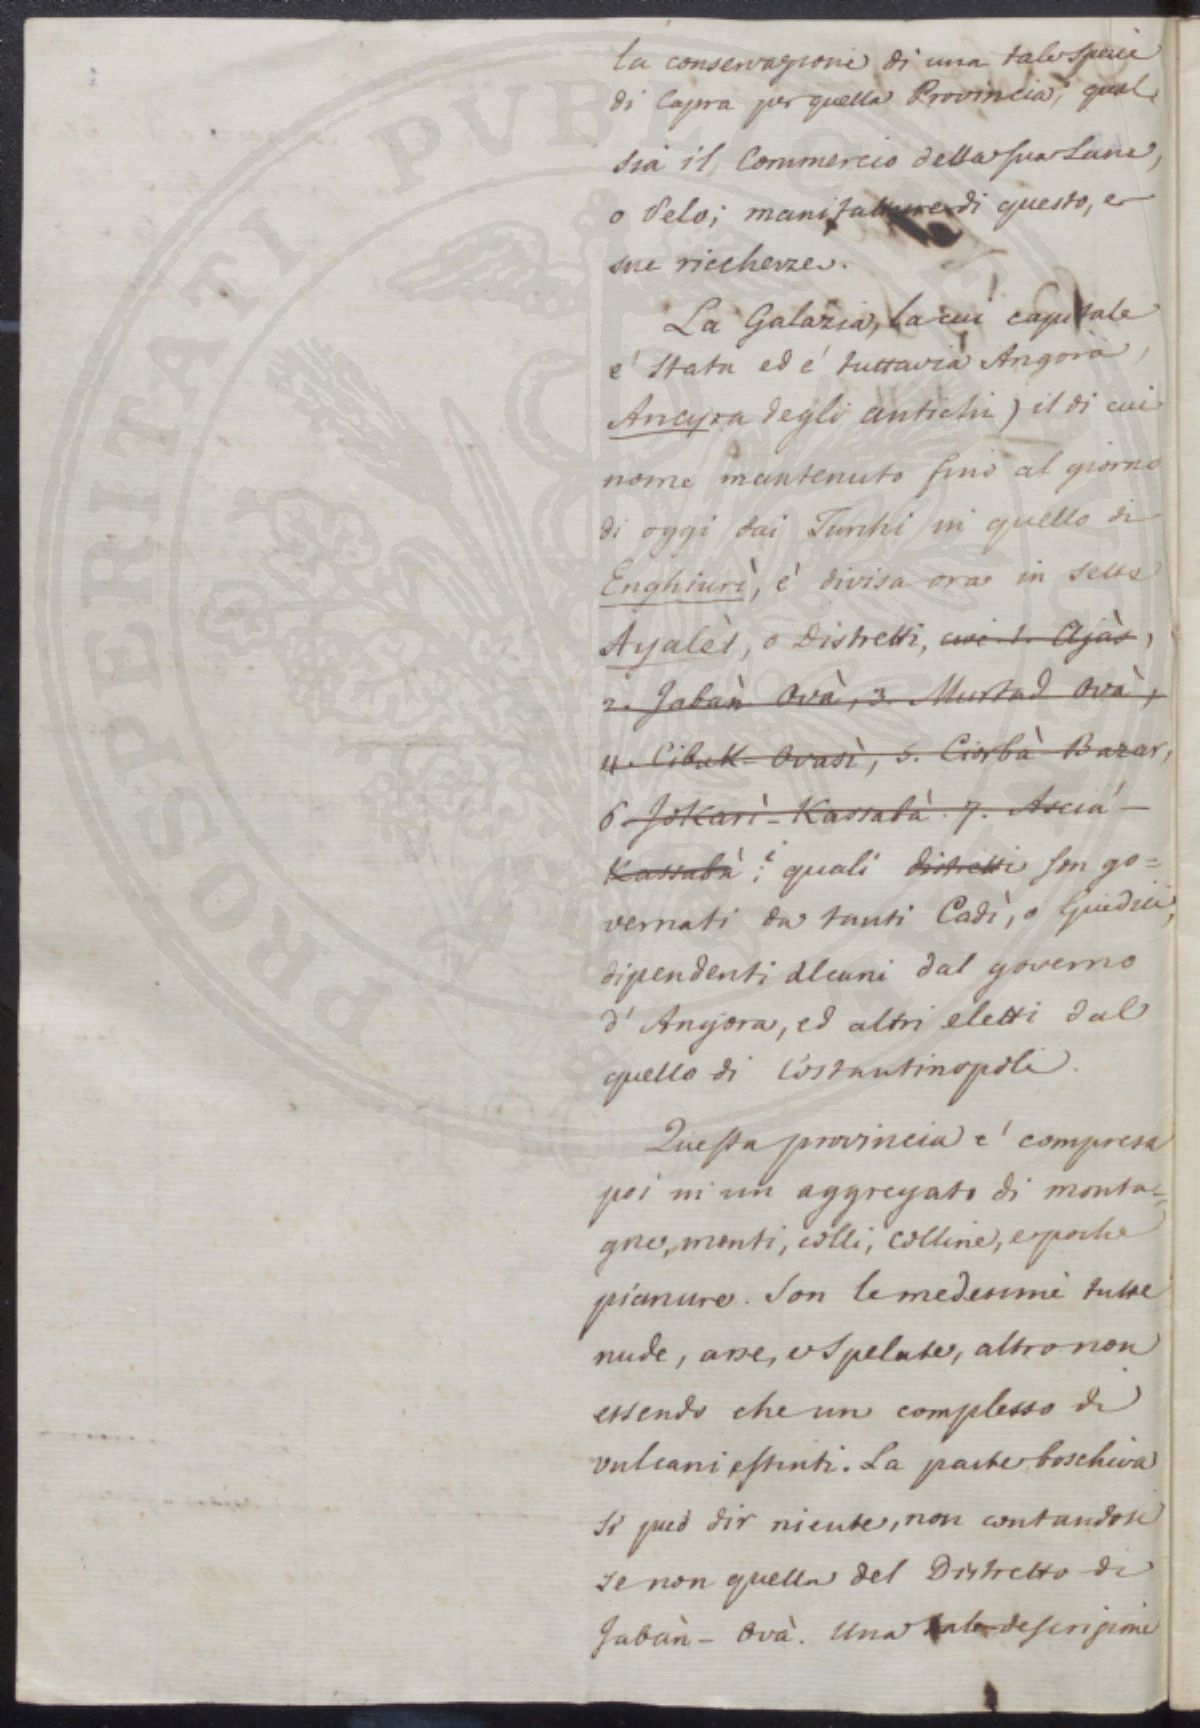 la conservazione di una tale specie
di Capra per quella Provincia; qual
sia il Commercio della sua Lana,
o Pelo; manifatture di questo, e
sue ricchezze.
La Galazia, la cui capitale
e' stata ed e' tuttavia Angora,
Ancyra degli antichi) il di cui
nome mantenuto fino al giorno
di oggi dai Turchi in quello di
Enghiurì, e' divisa ora in sette
Ayalèt, o Distretti, cioè 1. Ajàs,
2. Jabàn Ovà, 3. Murtad Ovà,
4. Cibuk Ovasì, 5. Ciorbà Bazar,
6 Jokarì-Kassabà. 7. Asciá-
Kassabà; i quali distretti son go=
vernati da tanti Cadì, o Giudici,
dipendenti alcuni dal governo
d'Angora, ed altri eletti dal
quello di Costantinopoli.
Questa provincia e' compresa
poi in un aggregato di monta=
gne, monti, colli, colline, e poche
pianure. Son le medesime tutte
nude, arse, e spelate, altro non
essendo che un complesso di
vulcani estinti. La parte boschiva
si può dir niente, non contandosi
se non quella del Distretto di
Jabàn-Ovà. Una tale descrizione
PROSPERITATI PVBLICAE